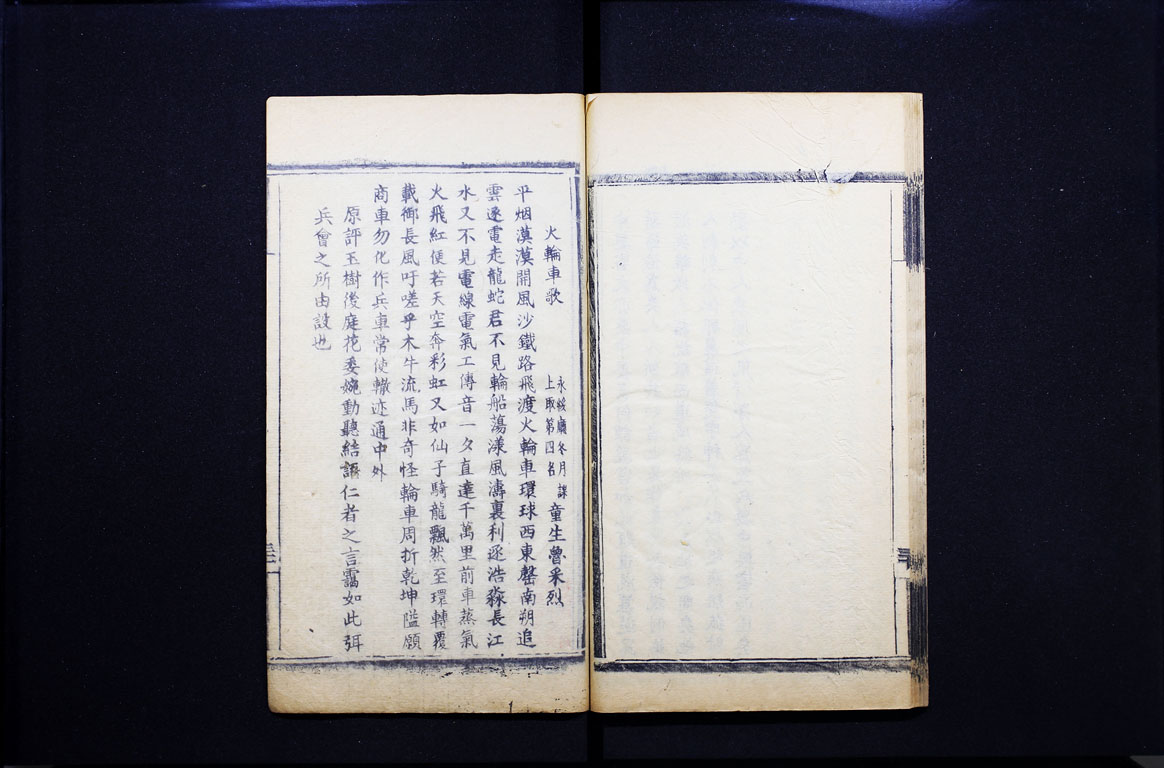 火輪車歌 永綏廳冬月課 上取第四名 童生魯采烈
平烟漠漠開風沙鐵路飛渡火輪車環球西東罄南朔追
雲逐電走龍蛇君不見輪船蕩漾風濤裏利逐浩淼長江
水又不見電線電氣工傳音一夕直達千萬里前車蒸氣
火飛紅便若天空奔彩虹又如仙子騎龍飄然至環轉覆
載御長風吁嗟乎木牛流馬非奇怪輪車周折乾坤隘願
商車勿化作兵車常使轍迹通中外
原評玉樹後庭花委婉動聽結語仁者之言靄如此弭
兵會之所由設也